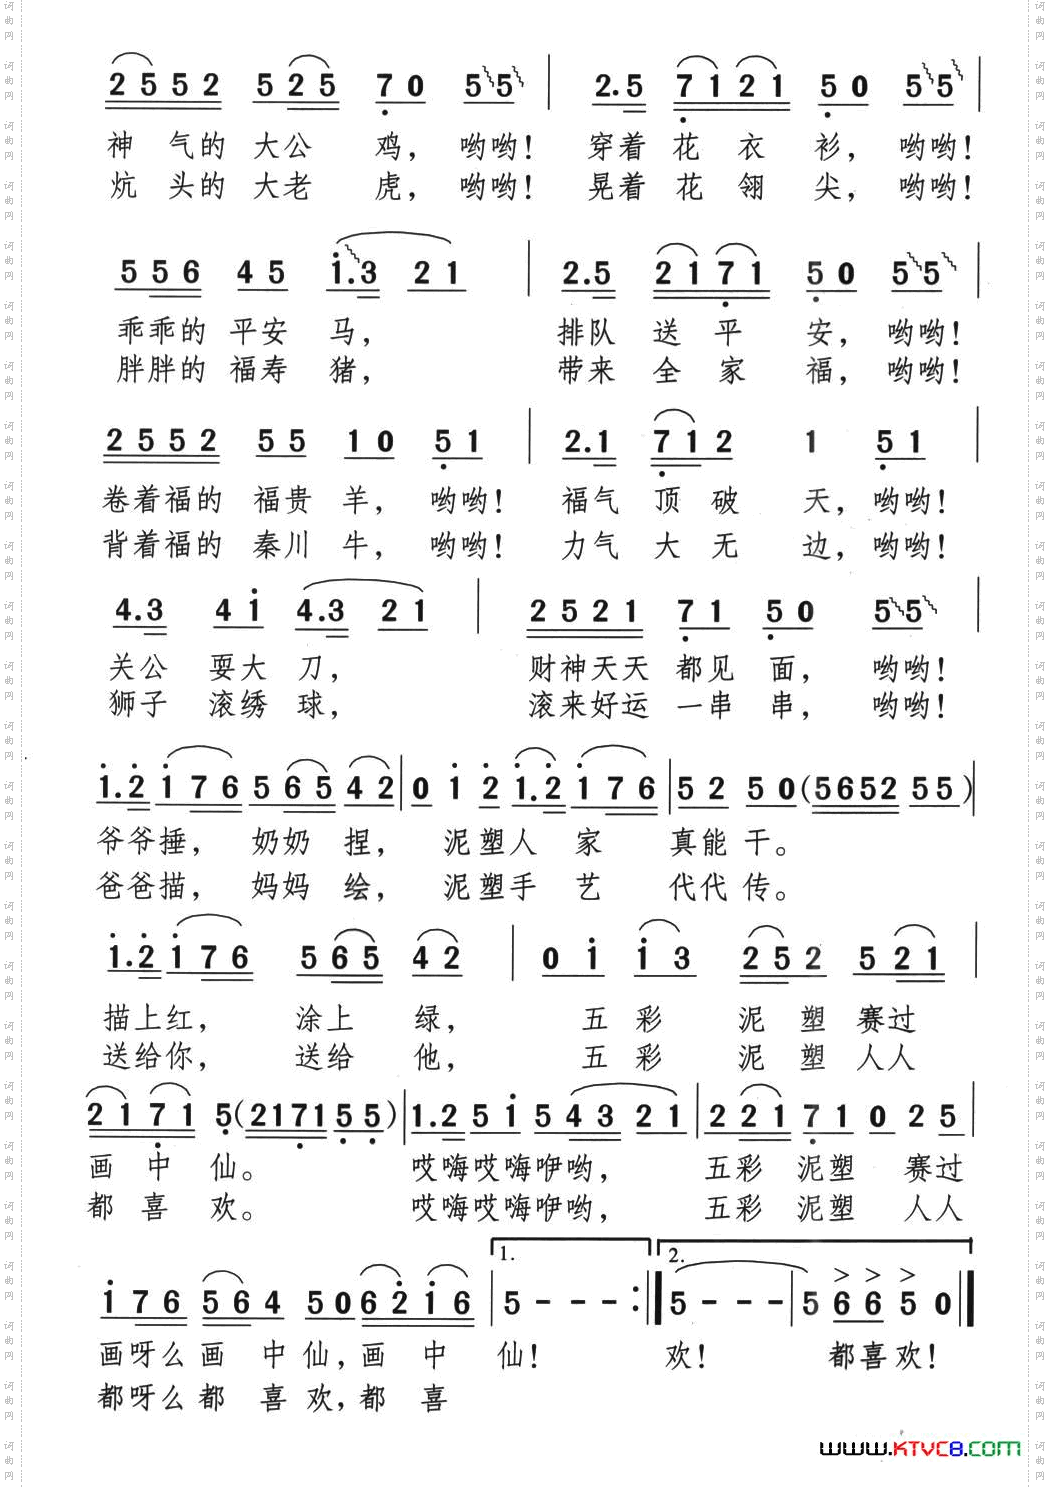 2552 525 70 55 | 2.5 7121 50 55 |
神气的大公鸡，哟哟！穿着花衣衫，哟哟！
炕头的大老虎，哟哟！晃着花翎尖，哟哟！
556 45 1.3 21 | 2.5 2171 50 55 |
乖乖的平安马，排队送平安，哟哟！
胖胖的福寿猪，带来全家福，哟哟！
2552 55 10 51 | 2.1 712 1 51 |
卷着福的福贵羊，哟哟！福气顶破天，哟哟！
背着福的秦川牛，哟哟！力气大无边，哟哟！
4.3 41 4.3 21 | 2521 71 50 55 |
关公耍大刀，财神天天都见面，哟哟！
狮子滚绣球，滚来好运一串串，哟哟！
1.2 176 565 42 | 0 1 2 1.2 176 | 52 50 (5652 55) |
爷爷捶，奶奶捏，泥塑人家真能干。
爸爸描，妈妈绘，泥塑手艺代代传。
1.2 176 565 42 | 01 13 252 521 |
描上红，涂上绿，五彩泥塑赛过
送给你，送给他，五彩泥塑人人
2171 5 (2171 55) | 1.2 51 543 21 | 221 71 0 2 5 |
画中仙。哎嗨哎嗨咿哟，五彩泥塑赛过
都喜欢。哎嗨哎嗨咿哟，五彩泥塑人人
1. 2.
176 564 50 6216 | 5 - - - :| 5 - - - | 5 66 50 |
画呀么画中仙，画中仙！欢！都喜欢！
都呀么都喜欢，都喜
www.KTVC8.com